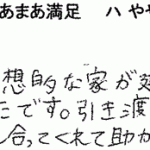 あまあ満足 ハ やや
想的な家が建
たです。引き渡
し合ってくれて助か